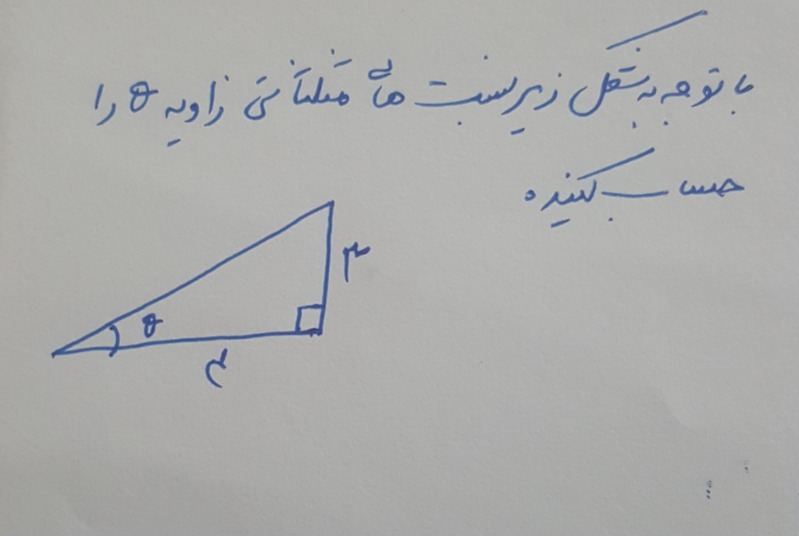 با توجه به شکل زیر نسبت های مثلثاتی زاویه θ را
حساب کنید.
۳
θ
۴